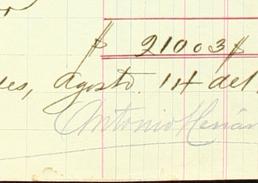 $ 21003 $
es, Agosto. 14 del
Antonio Hernán